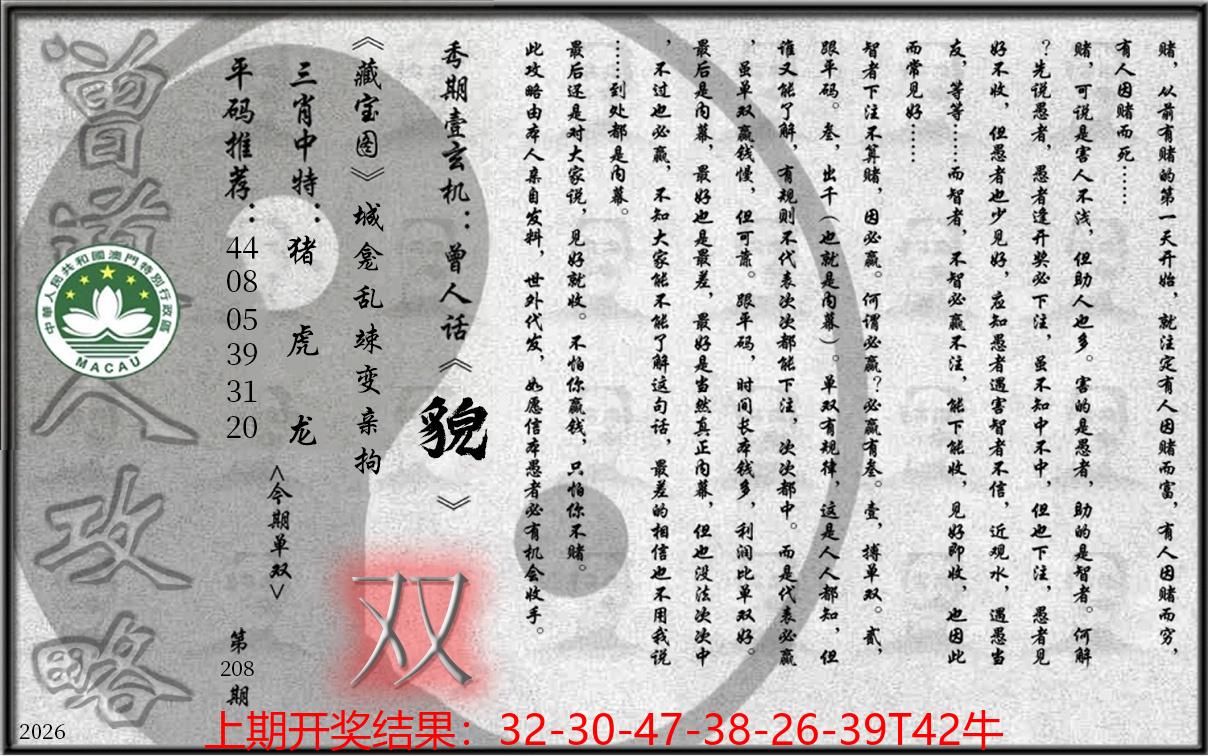 赌，从前有赌的第一天开始，就注定有人因赌而富，有人因赌而穷，
有人因赌而死……
赌，可说是害人不浅，但助人也多。害的是愚者，助的是智者。何解
？先说愚者，愚者逢开奖必下注，虽不知中不中，但也下注，愚者见
好不收，但愚者也少见好，应知愚者遇害智者不信，近观水，遇愚当
友，等等……而智者，不智必赢不注，能下能收，见好即收，也因此
而常见好……
智者下注不算赌，因必赢。何谓必赢？必赢有叁。壹，搏单双。贰，
跟平码。叁，出千（也就是内幕）。单双有规律，这是人人都知，但
谁又能了解，有规则不代表次次都能下注，次次都中。而是代表必赢
，虽单双赢钱慢，但可靠。跟平码，时间长本钱多，利润比单双好。
最后是内幕，最好也是最差，最好是当然真正内幕，但也没法次次中
，不过也必赢，不知大家能不能了解这句话，最差的相信也不用我说
……到处都是内幕。
最后还是对大家说，见好就收。不怕你赢钱，只怕你不赌。
此攻略由本人亲自发料，世外代发，如愿信本愚者必有机会收手。
秀期壹玄机：曾人话《貌》
《藏宝图》城龛乱竦变亲拘
双
三肖中特：猪 虎 龙
<今期单双>
平码推荐：44 08 05 39 31 20
第208期
曾道人攻略
中華人民共和國澳門特別行政區
MACAU
2026
上期开奖结果：32-30-47-38-26-39T42牛